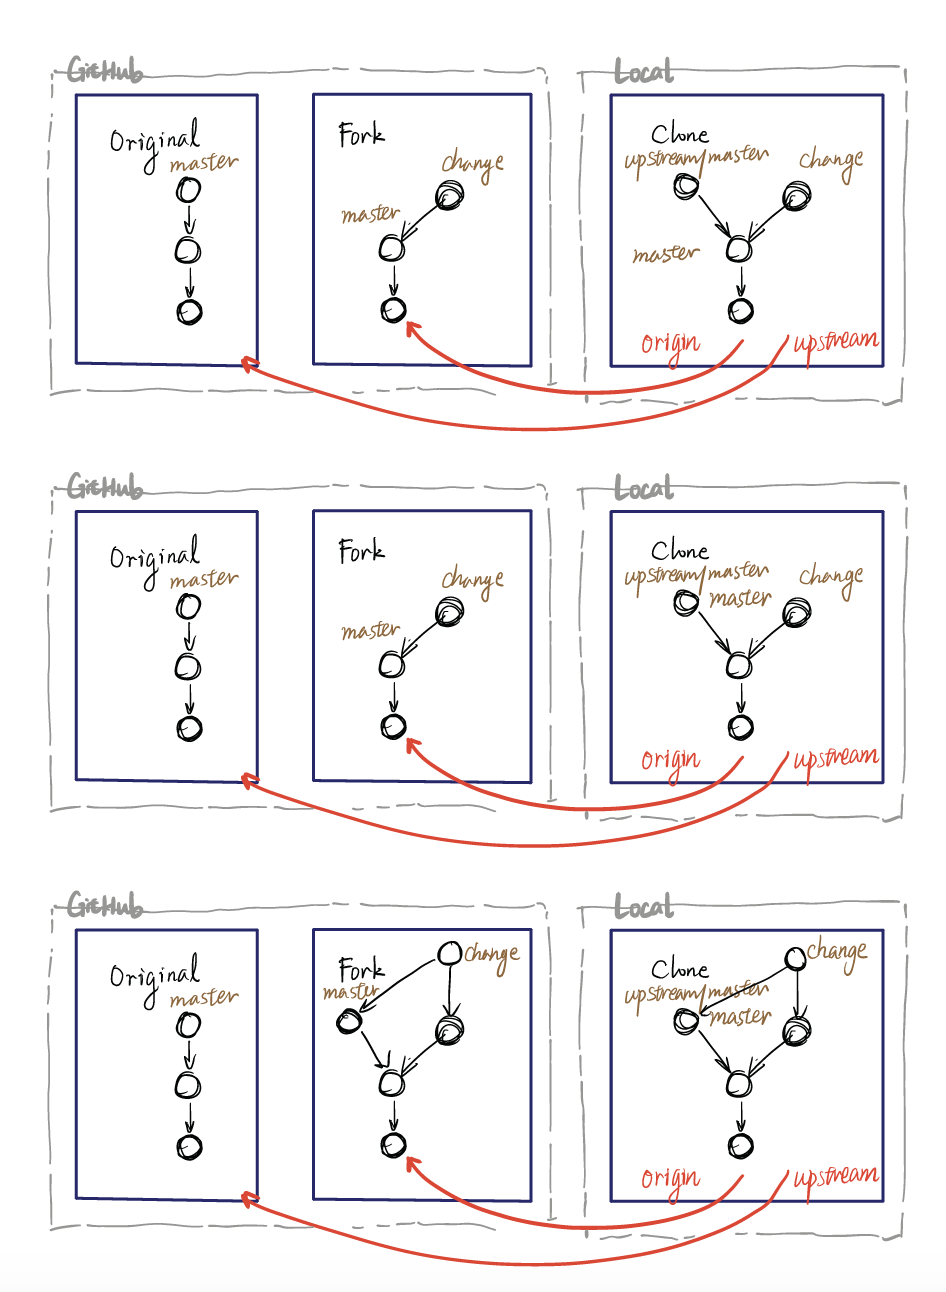 GitHub
Local
Original
master
Fork
change
master
Clone
upstream/master
change
master
origin
upstream
GitHub
Local
Original
master
Fork
change
master
Clone
upstream/master
master
change
origin
upstream
GitHub
Local
Original
master
Fork
change
master
Clone
upstream/master
master
change
origin
upstream